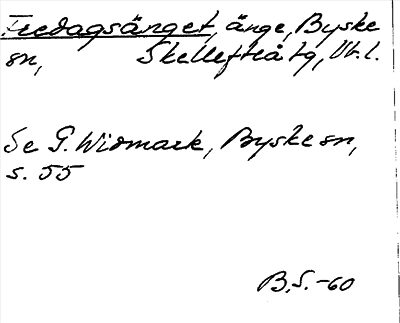 Fredagsänget, änge, Byske
sn, Skellefteå tg, Vb.l.
Se G. Widmark, Byske sn,
s. 55
B.S.-60